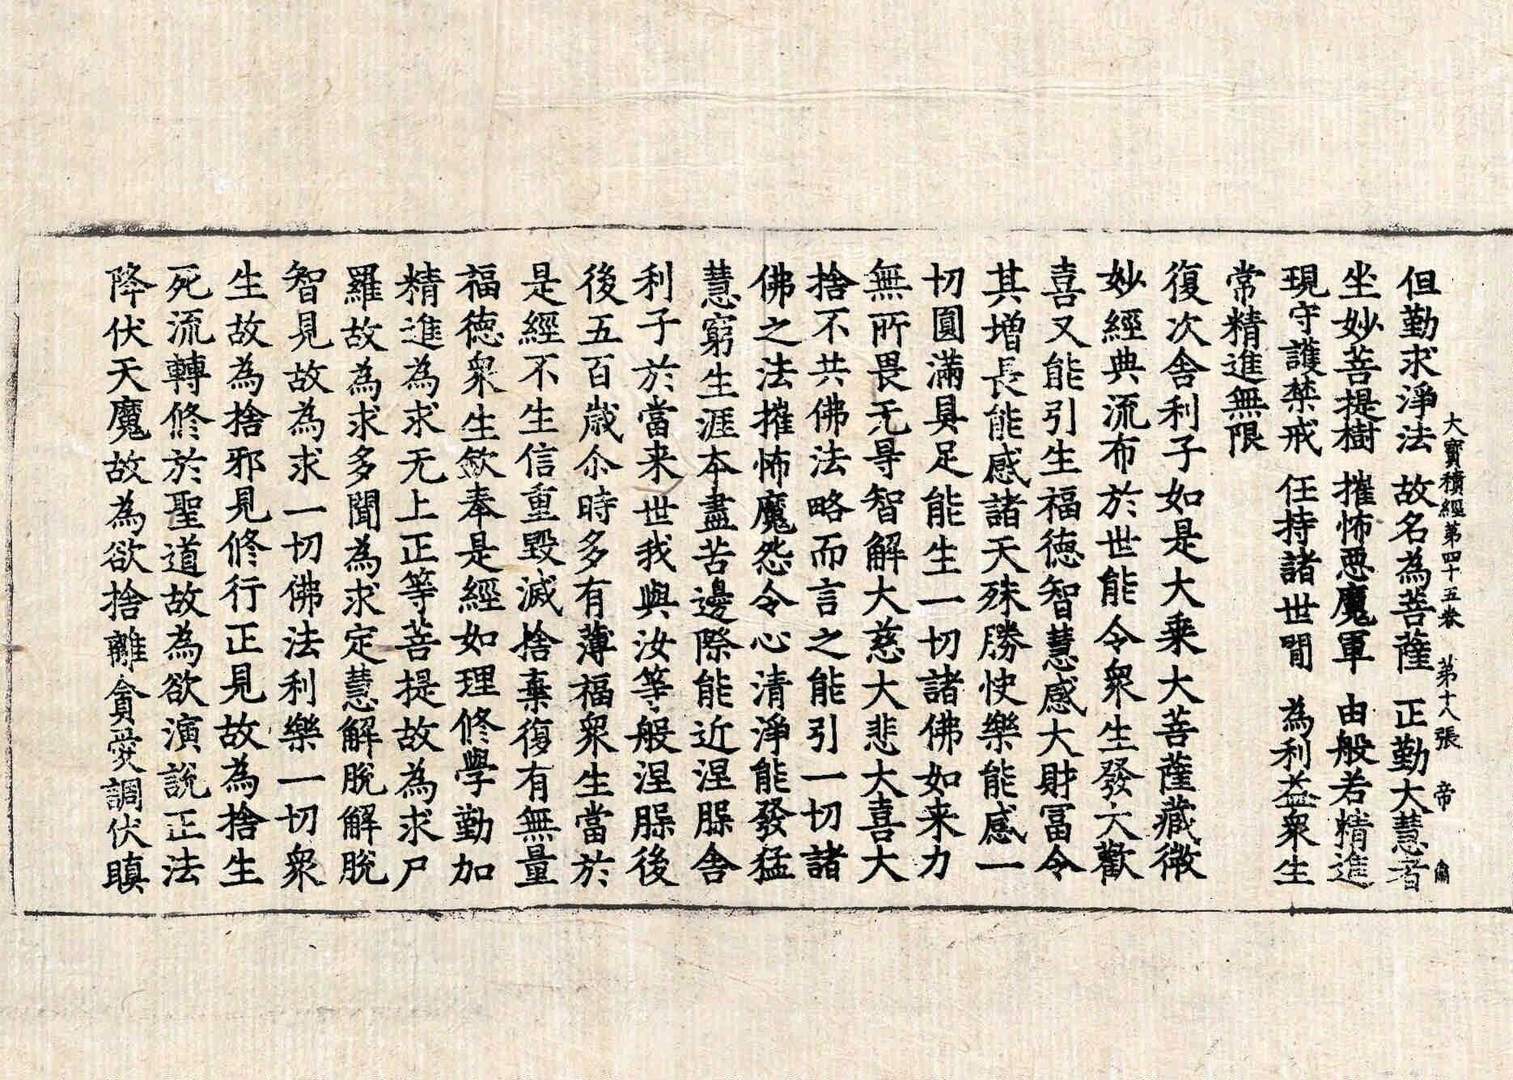 大寶積經第四十五卷 第十八張 帝
但勤求淨法 故名為菩薩 正勤大慧者
坐妙菩提樹 摧怖惡魔軍 由般若精進
現守護禁戒 任持諸世間 為利益衆生
常精進無限
復次舍利子如是大乘大菩薩藏微
妙經典流布於世能令衆生發大歡
喜又能引生福德智慧感大財冨令
其增長能感諸天殊勝快樂能感一
切圓滿具足能生一切諸佛如来力
無所畏无㝵智解大慈大悲大喜大
捨不共佛法略而言之能引一切諸
佛之法摧怖魔怨令心清淨能發猛
慧窮生涯本盡苦邊際能近涅槃舍
利子於當来世我與汝等般涅槃後
後五百歲尒時多有薄福衆生當於
是經不生信重毀滅捨棄復有無量
福德衆生歛奉是經如理修學勤加
精進為求无上正等菩提故為求尸
羅故為求多聞為求定慧解脫解脫
智見故為求一切佛法利樂一切衆
生故為捨邪見修行正見故為捨生
死流轉修於聖道故為欲演說正法
降伏天魔故為欲捨離貪愛調伏瞋